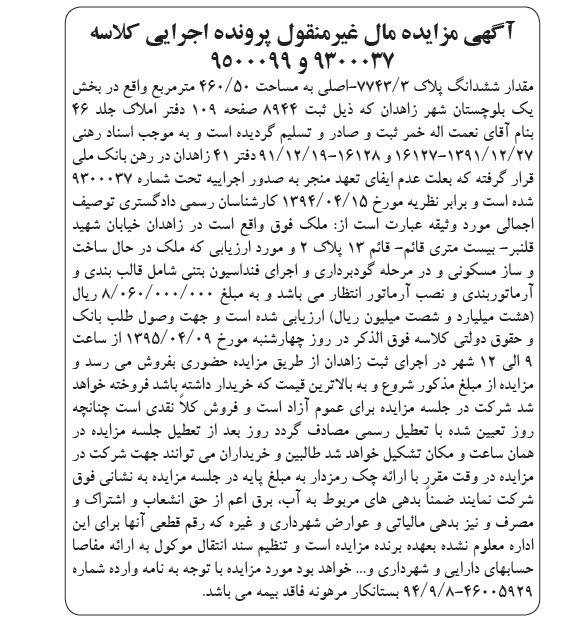 آگهی مزایده مال غیرمنقول پرونده اجرایی کلاسه
۹۳۰۰۰۳۷ و ۹۵۰۰۰۹۹
مقدار ششدانگ پلاک ۷۷۴۳/۳-اصلی به مساحت ۴۶۰/۵۰ مترمربع واقع در بخش
یک بلوچستان شهر زاهدان که ذیل ثبت ۸۹۴۴ صفحه ۱۰۹ دفتر املاک جلد ۴۶
بنام آقای نعمت اله خمر ثبت و صادر و تسلیم گردیده است و به موجب اسناد رهنی
۱۳۹۱/۱۲/۲۷-۱۶۱۲۷ و ۱۶۱۲۸-۹۱/۱۲/۱۹ دفتر ۴۱ زاهدان در رهن بانک ملی
قرار گرفته که بعلت عدم ایفای تعهد منجر به صدور اجراییه تحت شماره ۹۳۰۰۰۳۷
شده است و برابر نظریه مورخ ۱۳۹۴/۰۴/۱۵ کارشناسان رسمی دادگستری توصیف
اجمالی مورد وثیقه عبارت است از: ملک فوق واقع است در زاهدان خیابان شهید
قلنبر- بیست متری قائم- قائم ۱۳ پلاک ۲ و مورد ارزیابی که ملک در حال ساخت
و ساز مسکونی و در مرحله گودبرداری و اجرای فنداسیون بتنی شامل قالب بندی و
آرماتوربندی و نصب آرماتور انتظار می باشد و به مبلغ ۸/۰۶۰/۰۰۰/۰۰۰ ریال
(هشت میلیارد و شصت میلیون ریال) ارزیابی شده است و جهت وصول طلب بانک
و حقوق دولتی کلاسه فوق الذکر در روز چهارشنبه مورخ ۱۳۹۵/۰۴/۰۹ از ساعت
۹ الی ۱۲ شهر در اجرای ثبت زاهدان از طریق مزایده حضوری بفروش می رسد و
مزایده از مبلغ مذکور شروع و به بالاترین قیمت که خریدار داشته باشد فروخته خواهد
شد شرکت در جلسه مزایده برای عموم آزاد است و فروش کلاً نقدی است چنانچه
روز تعیین شده با تعطیل رسمی مصادف گردد روز بعد از تعطیل جلسه مزایده در
همان ساعت و مکان تشکیل خواهد شد طالبین و خریداران می توانند جهت شرکت در
مزایده در وقت مقرر با ارائه چک رمزدار به مبلغ پایه در جلسه مزایده به نشانی فوق
شرکت نمایند ضمناً بدهی های مربوط به آب، برق اعم از حق انشعاب و اشتراک و
مصرف و نیز بدهی مالیاتی و عوارض شهرداری و غیره که رقم قطعی آنها برای این
اداره معلوم نشده بعهده برنده مزایده است و تنظیم سند انتقال موکول به ارائه مفاصا
حسابهای دارایی و شهرداری و... خواهد بود مورد مزایده با توجه به نامه وارده شماره
۴۶۰۰۵۹۲۹-۹۴/۹/۸ بستانکار مرهونه فاقد بیمه می باشد.